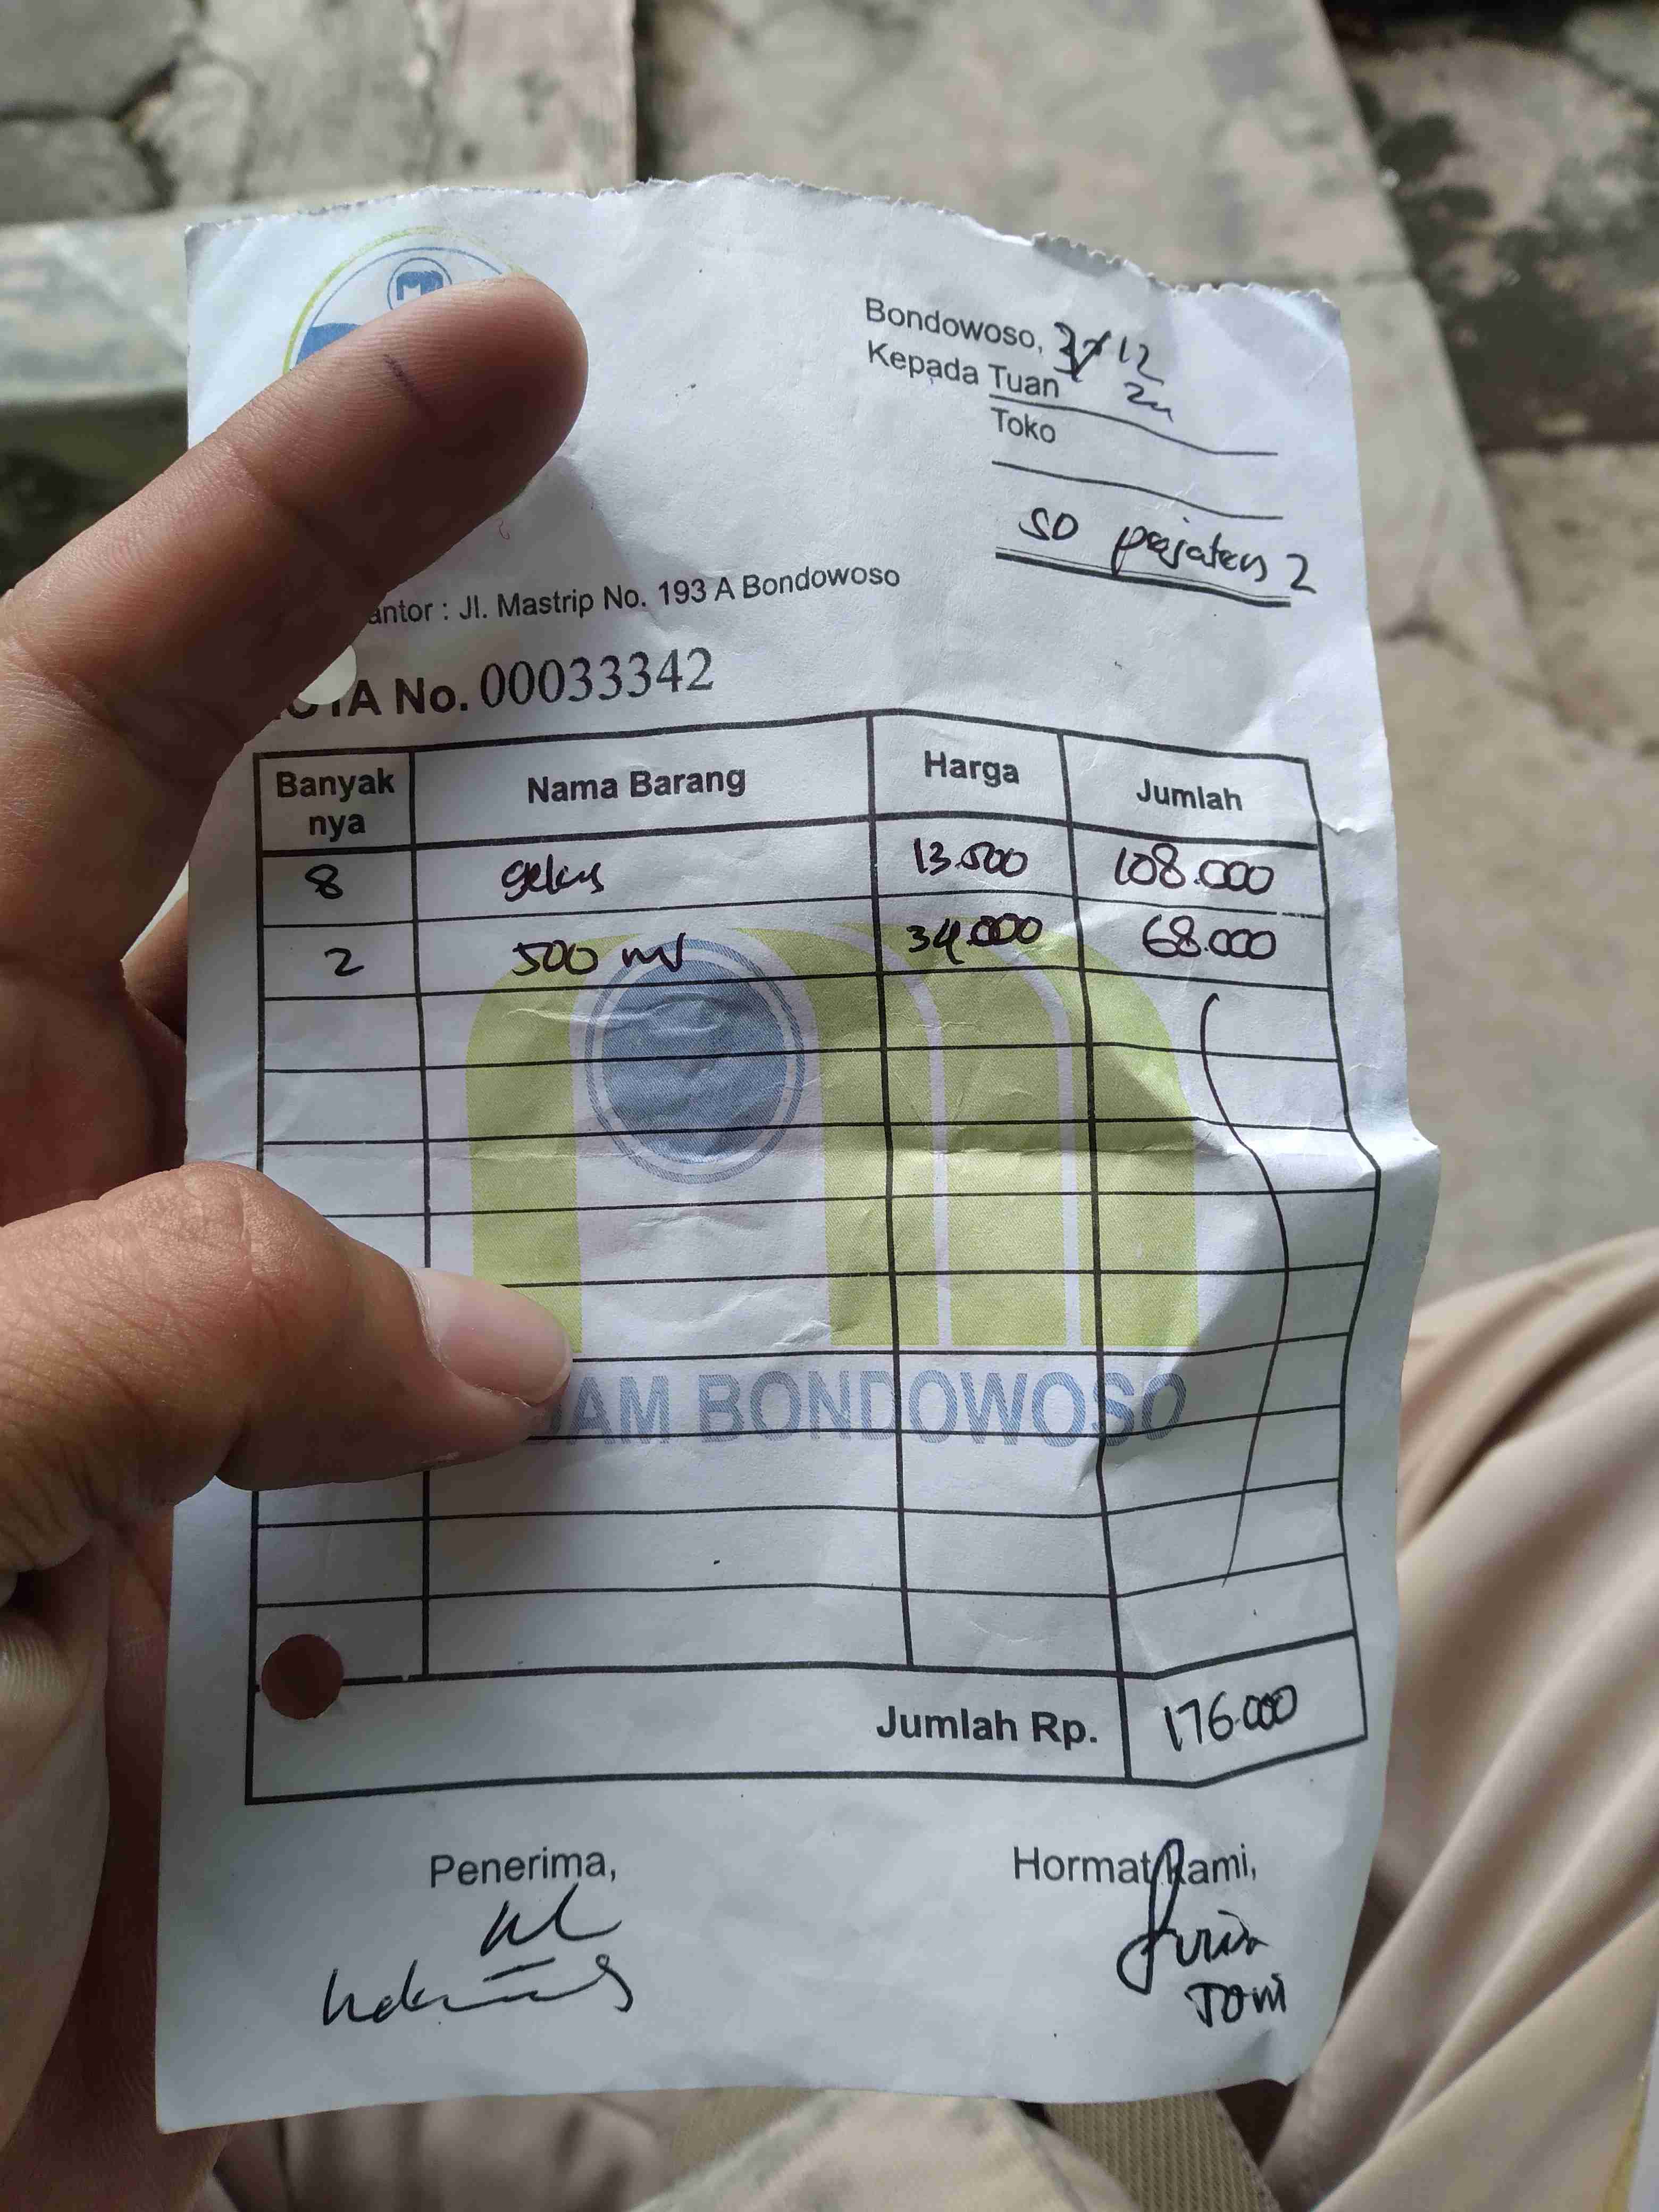 Bondowoso, 3/12
24
Kepada Tuan
Toko
SD pejaten 2
antor : Jl. Mastrip No. 193 A Bondowoso
OTA No. 00033342
Banyak nya Nama Barang Harga Jumlah
8 gelas 13.500 108.000
2 500 ml 34.000 68.000
DAM BONDOWOSO
Jumlah Rp. 176.000
Penerima, Hormat Kami,
Toni